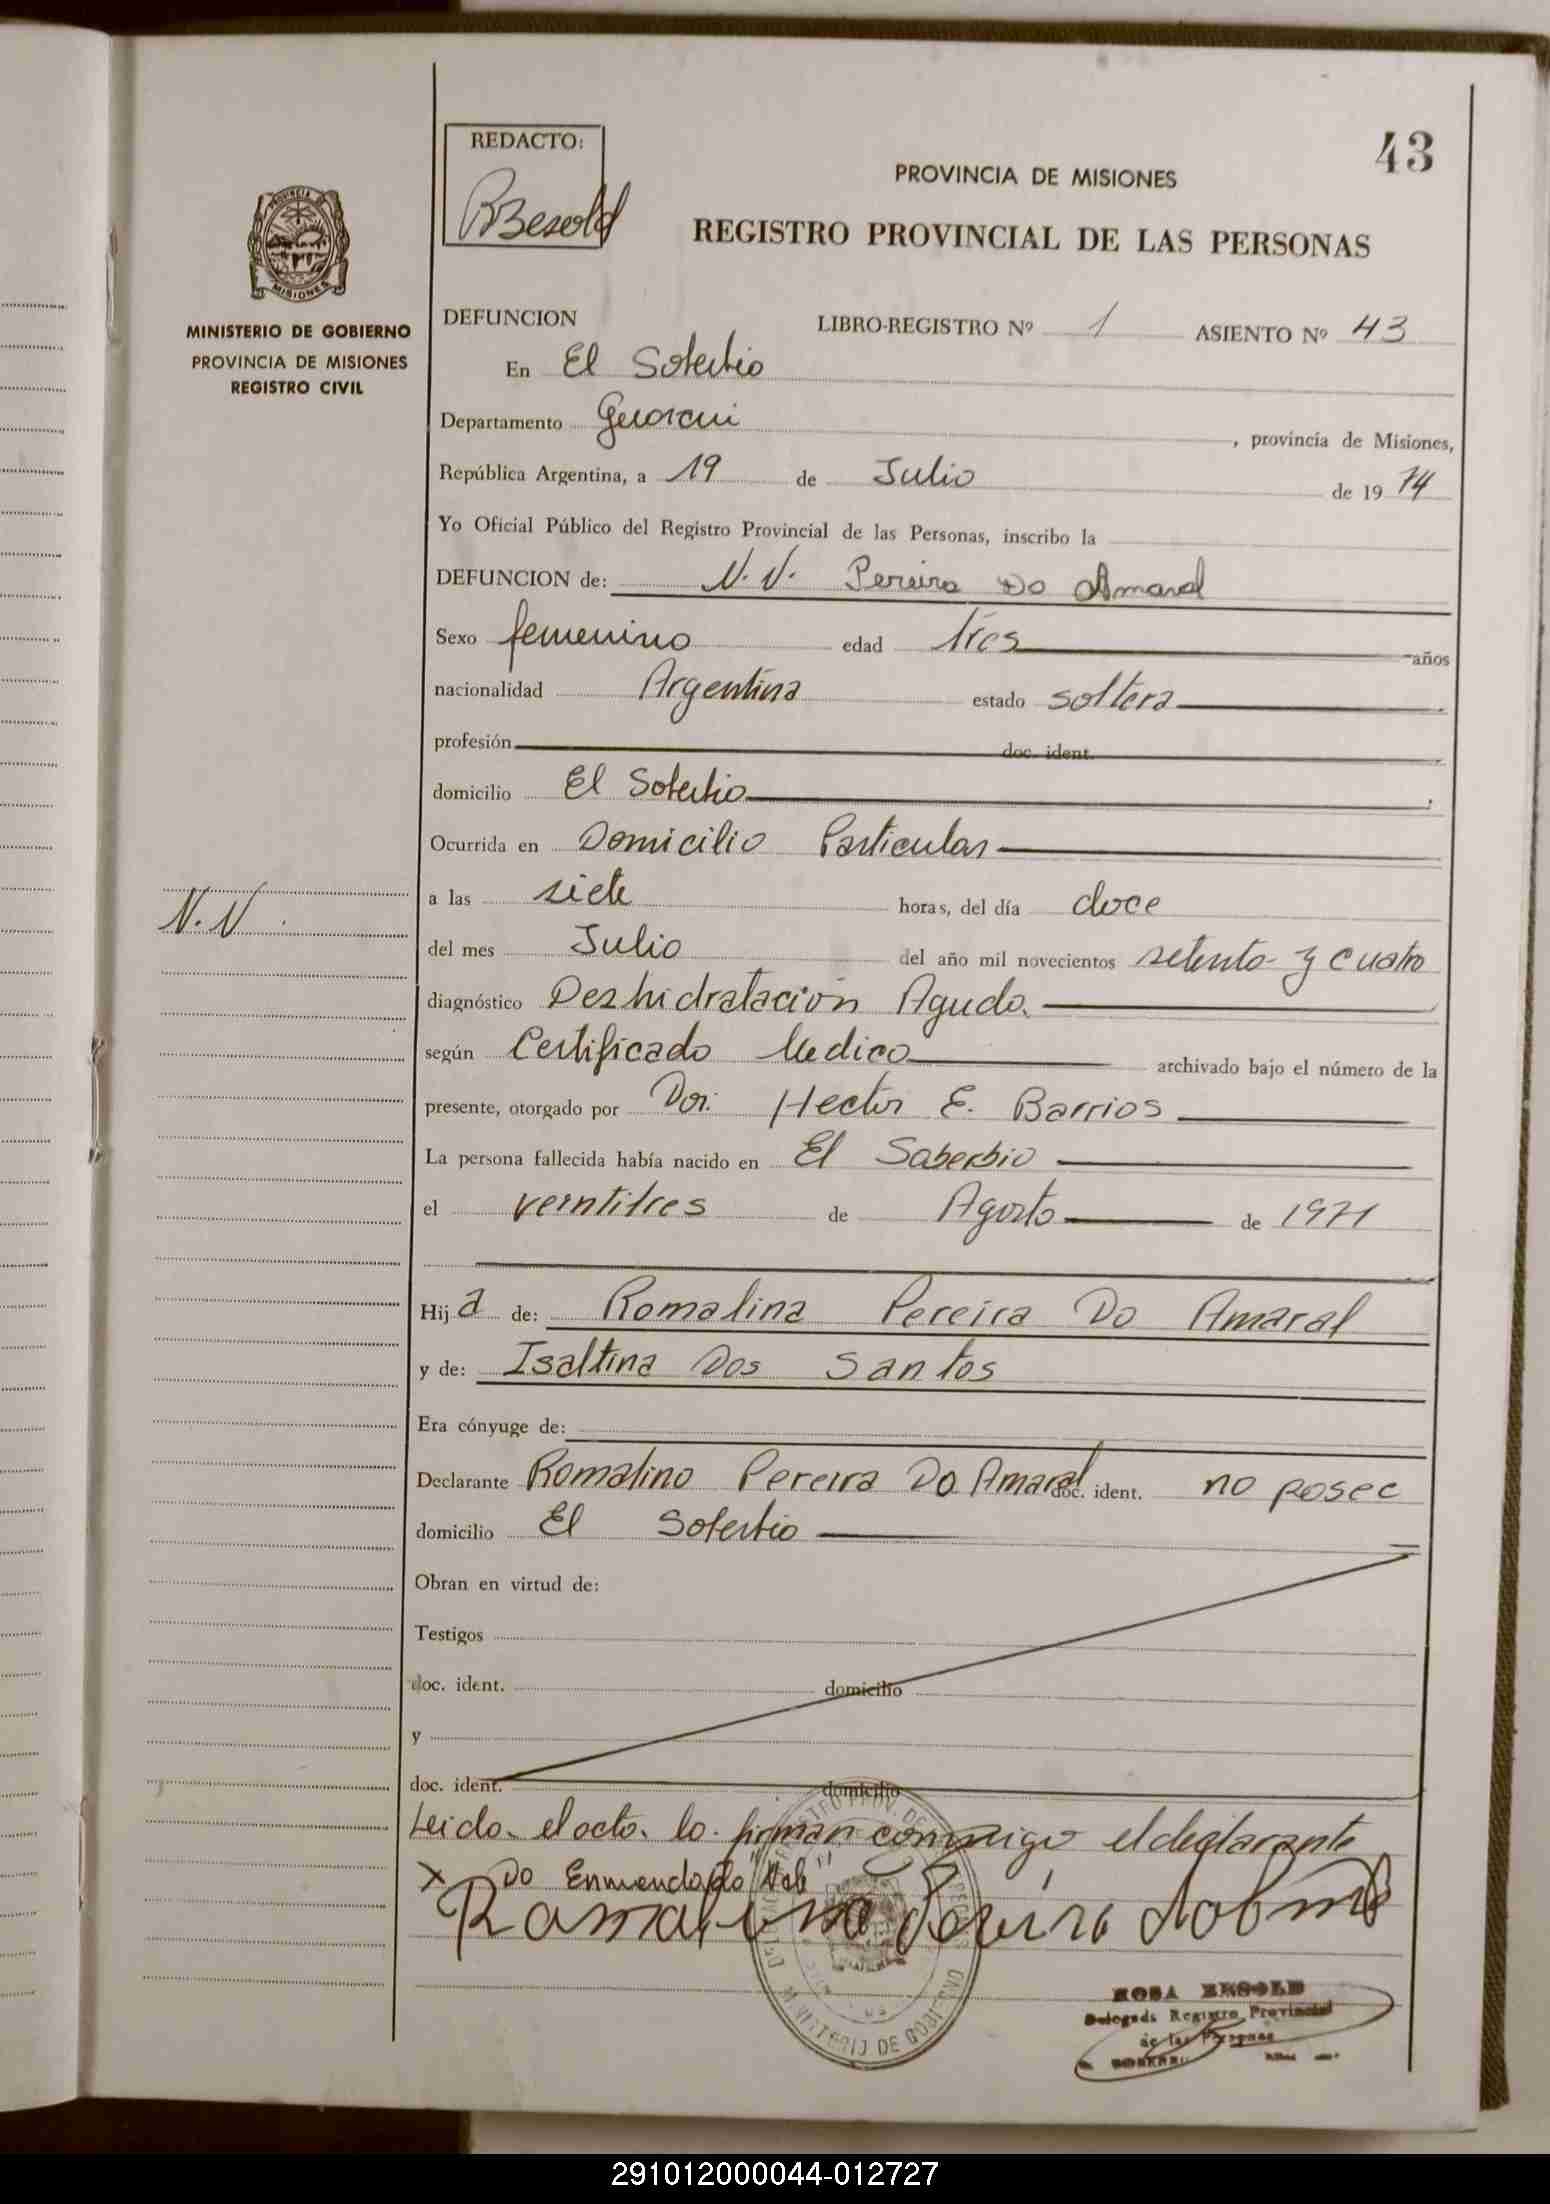 43
REDACTO:
RBesold
PROVINCIA DE MISIONES
REGISTRO PROVINCIAL DE LAS PERSONAS
PROVINCIA DE
MISIONES
MINISTERIO DE GOBIERNO
PROVINCIA DE MISIONES
REGISTRO CIVIL
N.N.
DEFUNCION LIBRO-REGISTRO Nº 1 ASIENTO Nº 43
En El Soberbio
Departamento Guarani, provincia de Misiones,
República Argentina, a 19 de Julio de 1974
Yo Oficial Público del Registro Provincial de las Personas, inscribo la
DEFUNCION de: N.N. Pereira Do Amaral
Sexo femenino edad tres años
nacionalidad Argentina estado soltera
profesión doc. ident.
domicilio El Soberbio
Ocurrida en Domicilio Particular
a las siete horas, del día doce
del mes Julio del año mil novecientos setenta y cuatro
diagnóstico Deshidratación Aguda.
según Certificado Medico archivado bajo el número de la
presente, otorgado por Dor. Hector E. Barrios
La persona fallecida había nacido en El Soberbio
el veintitres de Agosto de 1971
Hija de: Romalina Pereira Do Amaral
y de: Isaltina Dos Santos
Era cónyuge de:
Declarante Romalino Pereira Do Amaral doc. ident. no posee
domicilio El Soberbio
Obran en virtud de:
Testigos
doc. ident. domicilio
y
doc. ident. domicilio
Leida el acta lo firman conmigo el declarante
x Do Enmendado
Pereira
MINISTERIO DE GOBIERNO
ROSA BESOLD
Delegada Registro Provincial
de las Personas
291012000044-012727